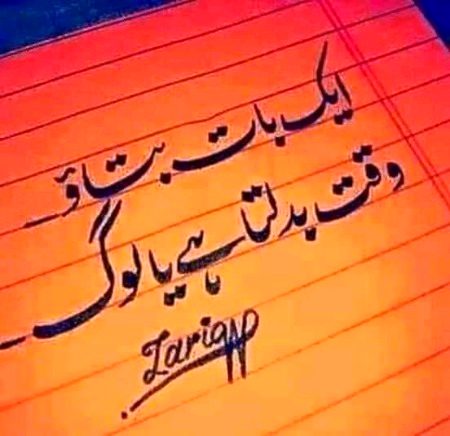 ایک بات بتاؤ
وقت بدلتا ہے یا لوگ